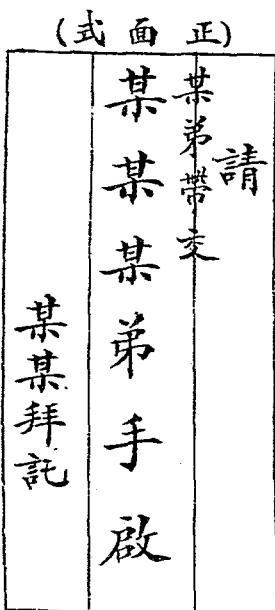 (式面正)
請
某弟帶交
某某某弟手啟
某某拜託